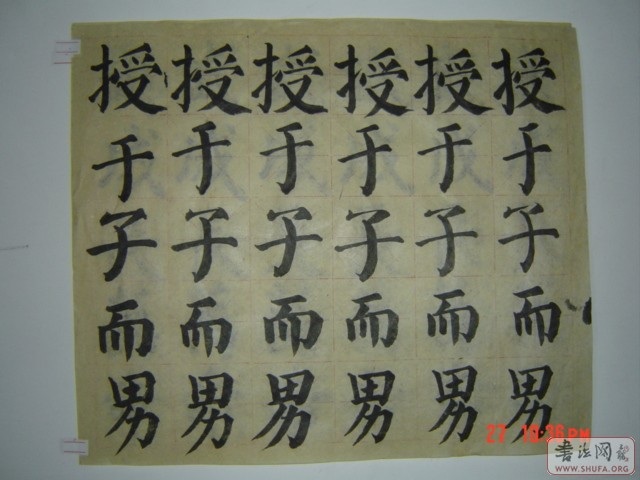 授授授授授授
于于于于于于
子子子子子子
而而而而而而
男男男男男男
书法网
WWW.SHUFA.ORG